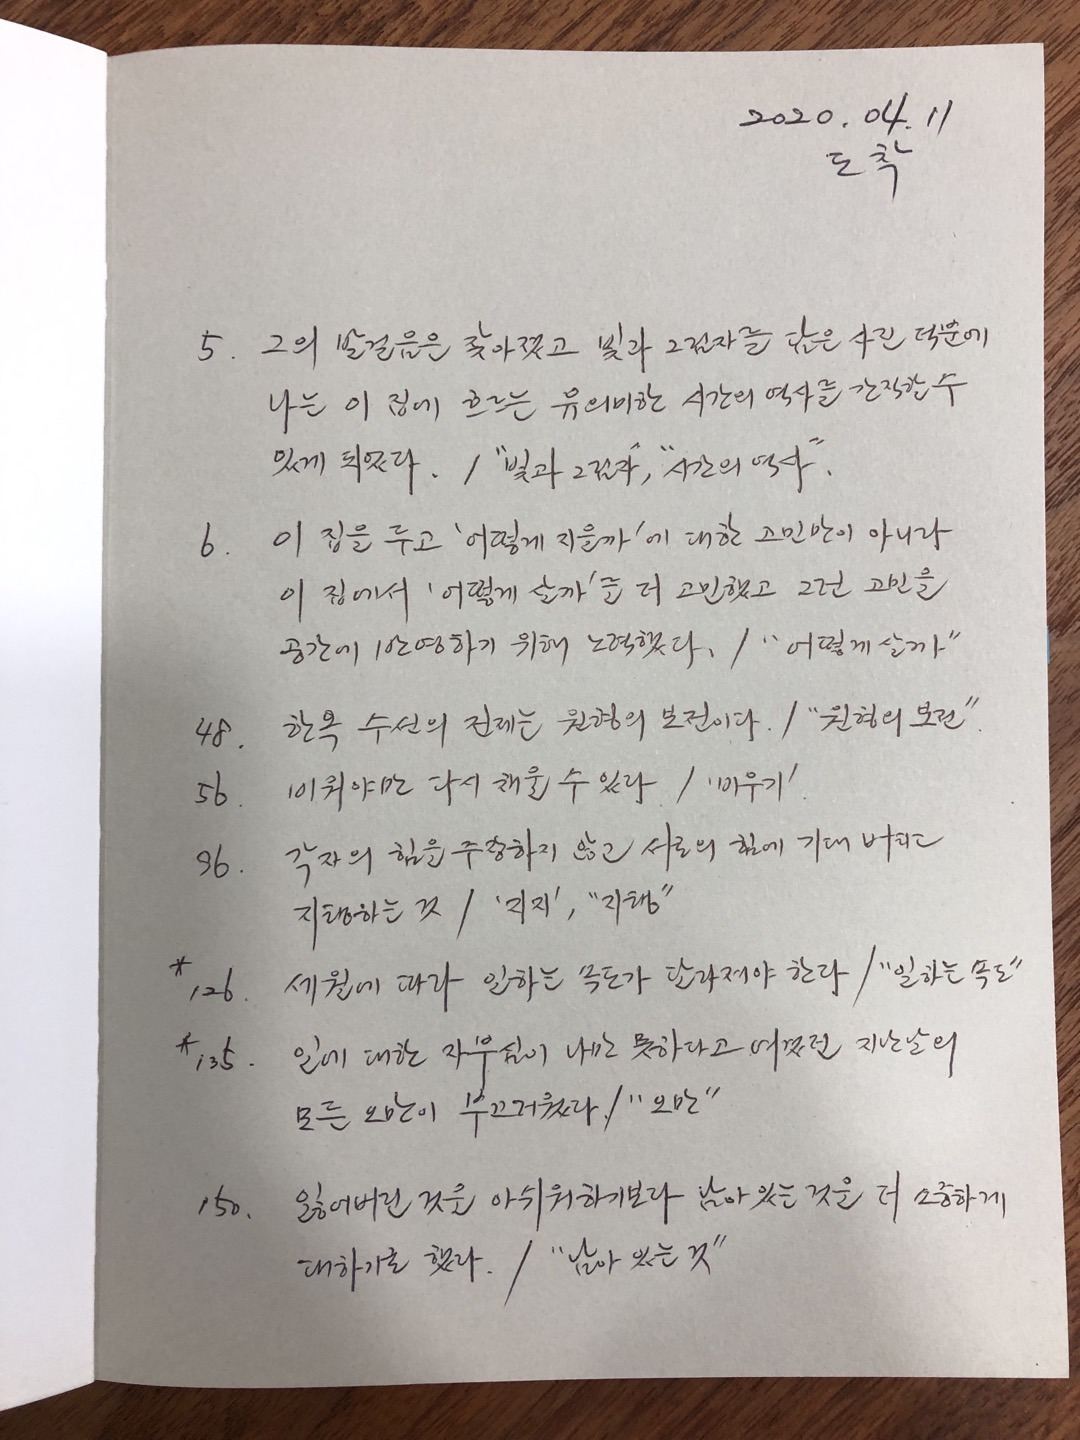 2020. 04. 11
도착
5. 그의 발걸음은 잦아졌고 빛과 그림자를 담은 사진 덕분에
나는 이 집에 흐르는 유의미한 시간의 역사를 간직할 수
있게 되었다. / "빛과 그림자", "시간의 역사".
6. 이 집을 두고 '어떻게 지을까'에 대한 고민만이 아니라
이 집에서 '어떻게 살까'를 더 고민했고 그런 고민을
공간에 반영하기 위해 노력했다. / "어떻게 살까"
48. 한옥 수선의 전제는 원형의 보전이다. / "원형의 보전".
56. 비워야만 다시 채울 수 있다 / '비우기'
96. 각자의 힘을 주장하지 않고 서로의 힘에 기대 버티고
지탱하는 것 / '지지', "지탱"
*126. 세월에 따라 일하는 속도가 달라져야 한다 / "일하는 속도"
*135. 일에 대한 자부심이 나만 못하다고 여겼던 지난날의
모든 오만이 부끄러웠다. / "오만"
150. 잃어버린 것을 아쉬워하기보다 남아 있는 것을 더 소중하게
대하기로 했다. / "남아 있는 것"